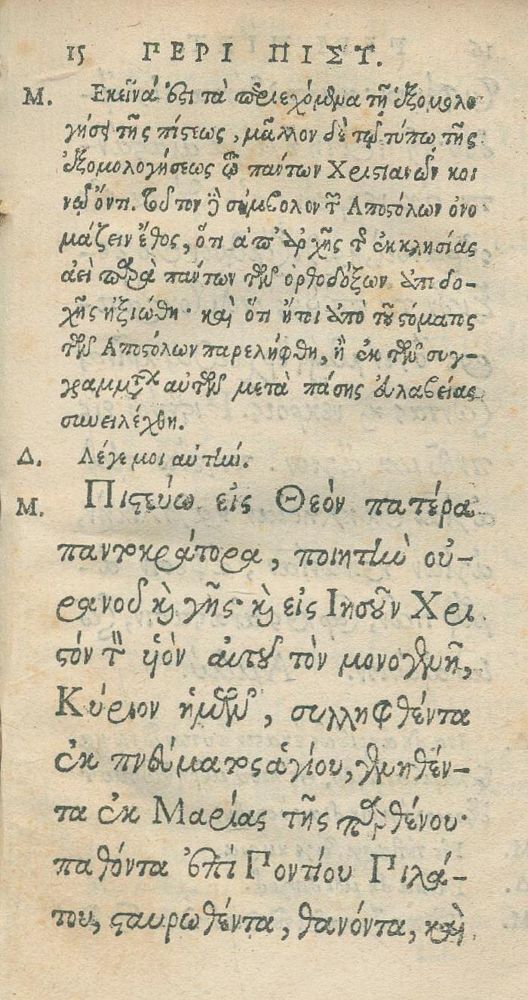 15 ΠΕΡΙ ΠΙΣΤ.
Μ. Ἐκεῖνά ἐστι τὰ περιεχόμενα τῇ ἐξομολο
γήσει τῆς πίστεως, μᾶλλον δὲ τῷ τύπῳ τῆς
ἐξομολογήσεως τῶν πάντων Χριστιανῶν κοι
νῷ ὄντι. τοῦτον γὰρ σύμβολον τῶν Ἀποστόλων ὀνο
μάζειν ἔθος, ὅτι ἀπ' ἀρχῆς τῆς ἐκκλησίας
ἀεὶ παρὰ πάντων τῶν ὀρθοδόξων ἐπιδο-
χῆς ἠξιώθη· καὶ ὅτι ἤτοι ἀπὸ τοῦ στόματος
τῶν Ἀποστόλων παρελήφθη, ἢ ἐκ τῶν συγ-
γραμμάτων αὐτῶν μετὰ πάσης εὐλαβείας
συνειλέχθη.
Δ. Λέγε μοι αὐτήν.
Μ. Πιστεύω εἰς Θεὸν πατέρα
παντοκράτορα, ποιητὴν οὐ-
ρανοῦ καὶ γῆς· καὶ εἰς Ἰησοῦν Χρι
στόν τὸν υἱὸν αὐτοῦ τὸν μονογενῆ,
Κύριον ἡμῶν, συλληφθέντα
ἐκ πνεύματος ἁγίου, γεννηθέν-
τα ἐκ Μαρίας τῆς παρθένου·
παθόντα ἐπὶ Ποντίου Πιλά-
του, σταυρωθέντα, θανόντα, καὶ